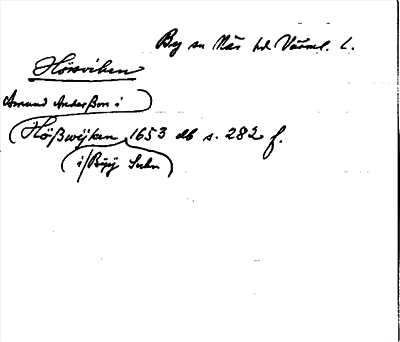 By sn Näs hd Värml. l.
Hössviken
Amund Anderßon i
Hößwijken 1653 db s. 282 f.
i Byy Sokn